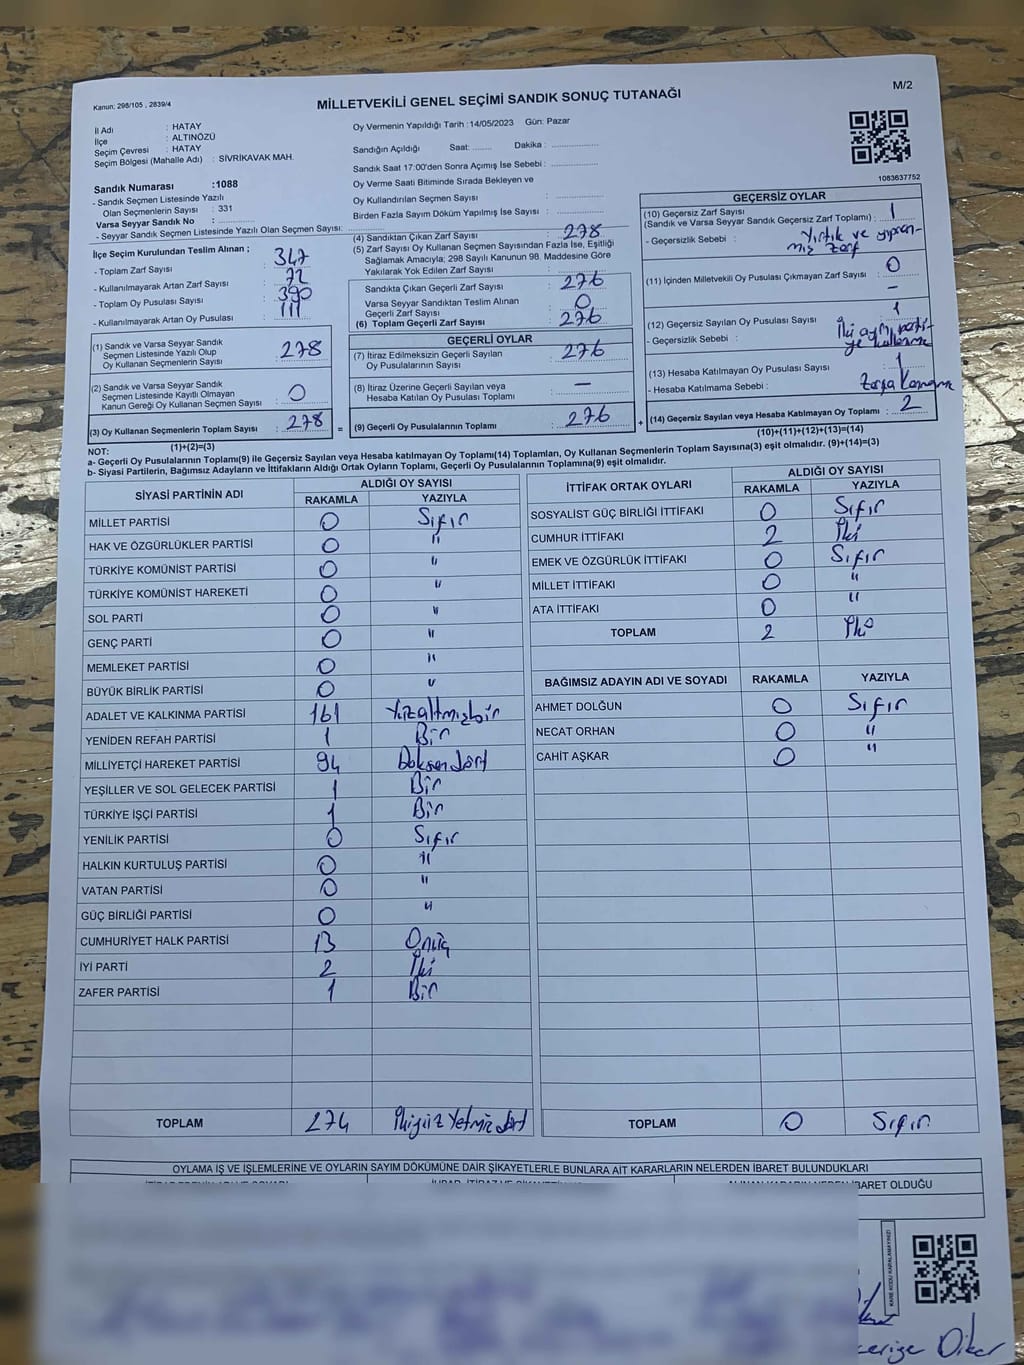 Kanun: 298/105 , 2839/4
MİLLETVEKİLİ GENEL SEÇİMİ SANDIK SONUÇ TUTANAĞI
M/2
İl Adı : HATAY
İlçe : ALTINÖZÜ
Seçim Çevresi : HATAY
Seçim Bölgesi (Mahalle Adı) : SİVRİKAVAK MAH.
Sandık Numarası :1088
- Sandık Seçmen Listesinde Yazılı
Olan Seçmenlerin Sayısı : 331
Varsa Seyyar Sandık No : ...............
- Seyyar Sandık Seçmen Listesinde Yazılı Olan Seçmen Sayısı: ...............
Oy Vermenin Yapıldığı Tarih :14/05/2023 Gün: Pazar
Sandığın Açıldığı Saat: ........ Dakika : ...............
Sandık Saat 17:00'den Sonra Açımış İse Sebebi : ...............
Oy Verme Saati Bitiminde Sırada Bekleyen ve
Oy Kullandırılan Seçmen Sayısı : ...............
Birden Fazla Sayım Döküm Yapılmış İse Sayısı : ...............
1083637752
İlçe Seçim Kurulundan Teslim Alınan ;
- Toplam Zarf Sayısı : 347
- Kullanılmayarak Artan Zarf Sayısı : 72
- Toplam Oy Pusulası Sayısı : 390
- Kullanılmayarak Artan Oy Pusulası : 111
(1) Sandık ve Varsa Seyyar Sandık
Seçmen Listesinde Yazılı Olup
Oy Kullanan Seçmenlerin Sayısı : 278
(2) Sandık ve Varsa Seyyar Sandık
Seçmen Listesinde Kayıtlı Olmayan
Kanun Gereği Oy Kullanan Seçmen Sayısı : 0
(3) Oy Kullanan Seçmenlerin Toplam Sayısı : 278
(4) Sandıktan Çıkan Zarf Sayısı : 278
(5) Zarf Sayısı Oy Kullanan Seçmen Sayısından Fazla İse, Eşitliği
Sağlamak Amacıyla; 298 Sayılı Kanunun 98. Maddesine Göre
Yakılarak Yok Edilen Zarf Sayısı : ...............
Sandıkta Çıkan Geçerli Zarf Sayısı : 276
Varsa Seyyar Sandıktan Teslim Alınan
Geçerli Zarf Sayısı : 0
(6) Toplam Geçerli Zarf Sayısı : 276
GEÇERLİ OYLAR
(7) İtiraz Edilmeksizin Geçerli Sayılan
Oy Pusulalarının Sayısı : 276
(8) İtiraz Üzerine Geçerli Sayılan veya
Hesaba Katılan Oy Pusulası Toplamı : —
= (9) Geçerli Oy Pusulalarının Toplamı : 276
GEÇERSİZ OYLAR
(10) Geçersiz Zarf Sayısı
(Sandık ve Varsa Seyyar Sandık Geçersiz Zarf Toplamı) : 1
- Geçersizlik Sebebi : Yırtık ve yıpran-
mış zarf
(11) İçinden Milletvekili Oy Pusulası Çıkmayan Zarf Sayısı : 0
—
(12) Geçersiz Sayılan Oy Pusulası Sayısı : 1
- Geçersizlik Sebebi : İki ayrı parti-
ye kullanma
(13) Hesaba Katılmayan Oy Pusulası Sayısı : 1
- Hesaba Katılmama Sebebi :
+ (14) Geçersiz Sayılan veya Hesaba Katılmayan Oy Toplamı : 2
(10)+(11)+(12)+(13)=(14)
NOT: (1)+(2)=(3)
a- Geçerli Oy Pusulalarının Toplamı(9) ile Geçersiz Sayılan veya Hesaba katılmayan Oy Toplamı(14) Toplamları, Oy Kullanan Seçmenlerin Toplam Sayısına(3) eşit olmalıdır. (9)+(14)=(3)
b- Siyasi Partilerin, Bağımsız Adayların ve İttifakların Aldığı Ortak Oyların Toplamı, Geçerli Oy Pusulalarının Toplamına(9) eşit olmalıdır.
SİYASİ PARTİNİN ADI ALDIĞI OY SAYISI
RAKAMLA YAZIYLA
MİLLET PARTİSİ 0 Sıfır
HAK VE ÖZGÜRLÜKLER PARTİSİ 0 "
TÜRKİYE KOMÜNİST PARTİSİ 0 "
TÜRKİYE KOMÜNİST HAREKETİ 0 "
SOL PARTİ 0 "
GENÇ PARTİ 0 "
MEMLEKET PARTİSİ 0 "
BÜYÜK BİRLİK PARTİSİ 0 "
ADALET VE KALKINMA PARTİSİ 161 Yüzaltmışbir
YENİDEN REFAH PARTİSİ 1 Bir
MİLLİYETÇİ HAREKET PARTİSİ 94 Doksandört
YEŞİLLER VE SOL GELECEK PARTİSİ 1 Bir
TÜRKİYE İŞÇİ PARTİSİ 1 Bir
YENİLİK PARTİSİ 0 Sıfır
HALKIN KURTULUŞ PARTİSİ 0 "
VATAN PARTİSİ 0 "
GÜÇ BİRLİĞİ PARTİSİ 0 "
CUMHURİYET HALK PARTİSİ 13 Onüç
İYİ PARTİ 2 İki
ZAFER PARTİSİ 1 Bir
TOPLAM 274 İkiyüz Yetmiş dört
İTTİFAK ORTAK OYLARI ALDIĞI OY SAYISI
RAKAMLA YAZIYLA
SOSYALİST GÜÇ BİRLİĞİ İTTİFAKI 0 Sıfır
CUMHUR İTTİFAKI 2 İki
EMEK VE ÖZGÜRLÜK İTTİFAKI 0 Sıfır
MİLLET İTTİFAKI 0 "
ATA İTTİFAKI 0 "
TOPLAM 2 İki
BAĞIMSIZ ADAYIN ADI VE SOYADI RAKAMLA YAZIYLA
AHMET DOLĞUN 0 Sıfır
NECAT ORHAN 0 "
CAHİT AŞKAR 0 "
TOPLAM 0 Sıfır
OYLAMA İŞ VE İŞLEMLERİNE VE OYLARIN SAYIM DÖKÜMÜNE DAİR ŞİKAYETLERLE BUNLARA AİT KARARLARIN NELERDEN İBARET BULUNDUKLARI
ALINAN KARARIN NEDEN İBARET OLDUĞU
KARE KODU KARALAMAYINIZ!